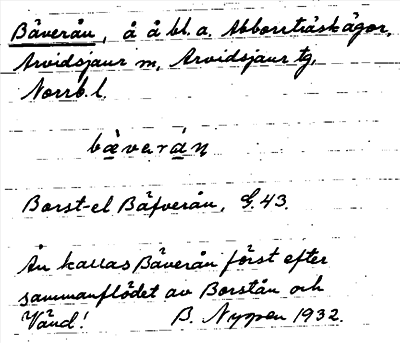 Bäverån, å å bl. a. Abborrträskägor,
Arvidsjaur m, Arvidsjaur tg,
Norrb. l.
bä̀verán
Borst- el Bäfverån, G. 43.
Ån kallas Bäverån först efter
sammanflödet av Borstån och
Vänd! B. Nygren 1932.